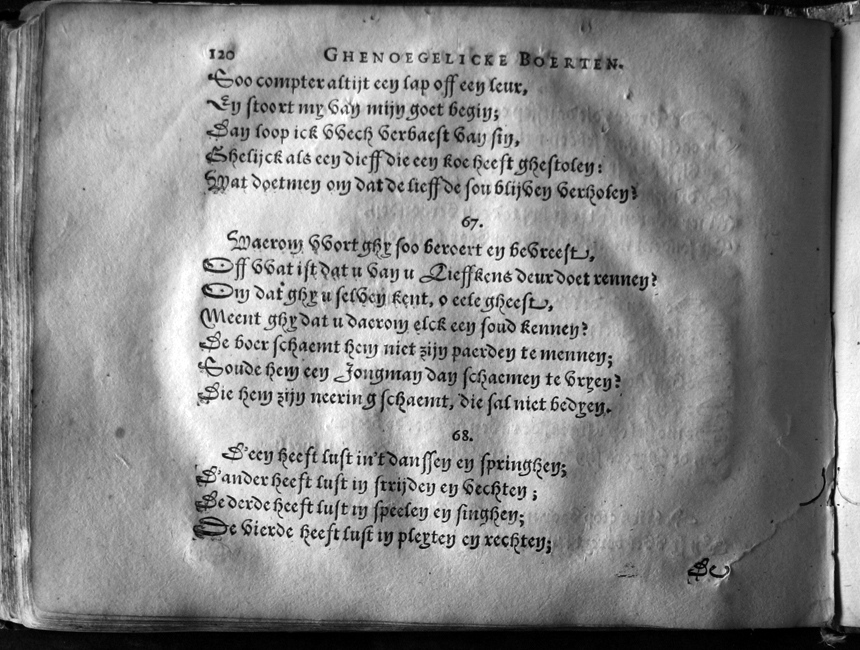 120 GHENOEGELICKE BOERTEN.
Soo compter altijt een lap off een leur,
En stoort my van mijn goet begin;
Dan loop ick wech verbaest van sin,
Ghelijck als een dieff die een koe heeft ghestolen:
Wat doetmen om dat de lieffde sou blijven verholen?
67.
Waerom wort ghy soo beroert en bevreest,
Off wat ist dat u van u Lieffkens deur doet rennen?
Om dat ghy u selven kent, o eele gheest,
Meent ghy dat u daerom elck een soud kennen?
De boer schaemt hem niet zijn paerden te mennen;
Soude hem een Jongman dan schaemen te vryen?
Die hem zijn neering schaemt, die sal niet bedyen.
68.
D'een heeft lust in't danssen en springhen;
D'ander heeft lust in strijden en vechten;
De derde heeft lust in speelen en singhen;
De vierde heeft lust in pleyten en rechten;
De